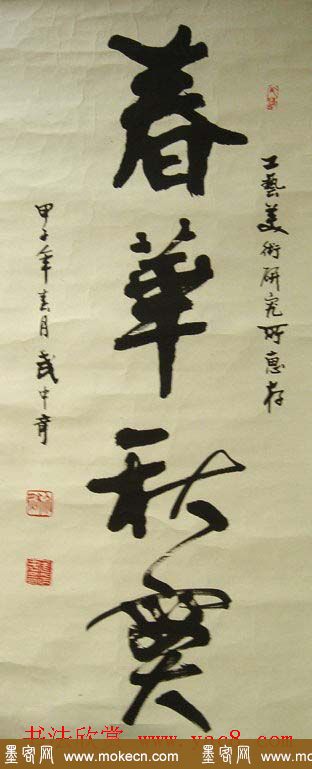 工藝美術研究所惠存
春華秋實
甲子年春月武中奇
书法欣赏 www.yac8.com
墨客网 www.mokecn.com 墨客网